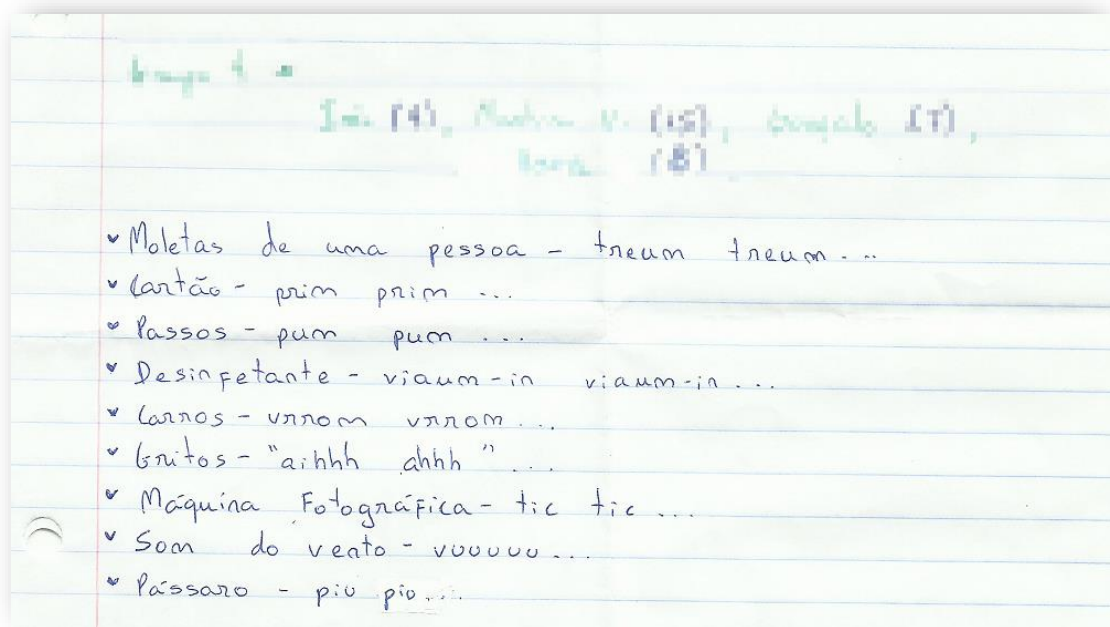 (15)
˅ Moletas de uma pessoa - treum treum...
˅ Cartão - prim prim ...
˅ Passos - pum pum ...
˅ Desinfetante - viaum-in viaum-in...
˅ Carros - vrrom vrrom...
˅ Gritos - "aihhh ahhh"...
˅ Máquina Fotográfica - tic tic ...
˅ Som do vento - vuuuuu...
˅ Pássaro - piu piu...